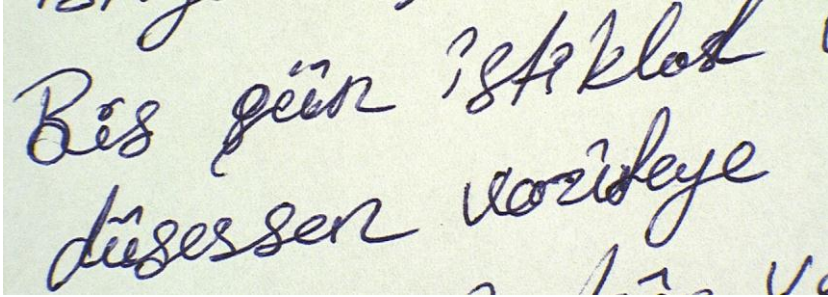 Bir gün istiklal
düşersen vazifeye